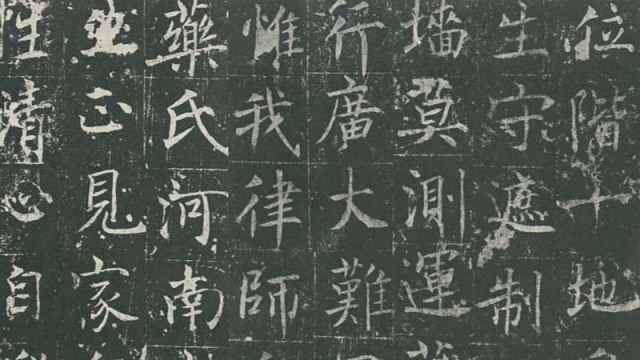 位階十地
生守遮制
墻莫測運
行廣大難
惟我律師
藥氏河南
正見家
性清心自